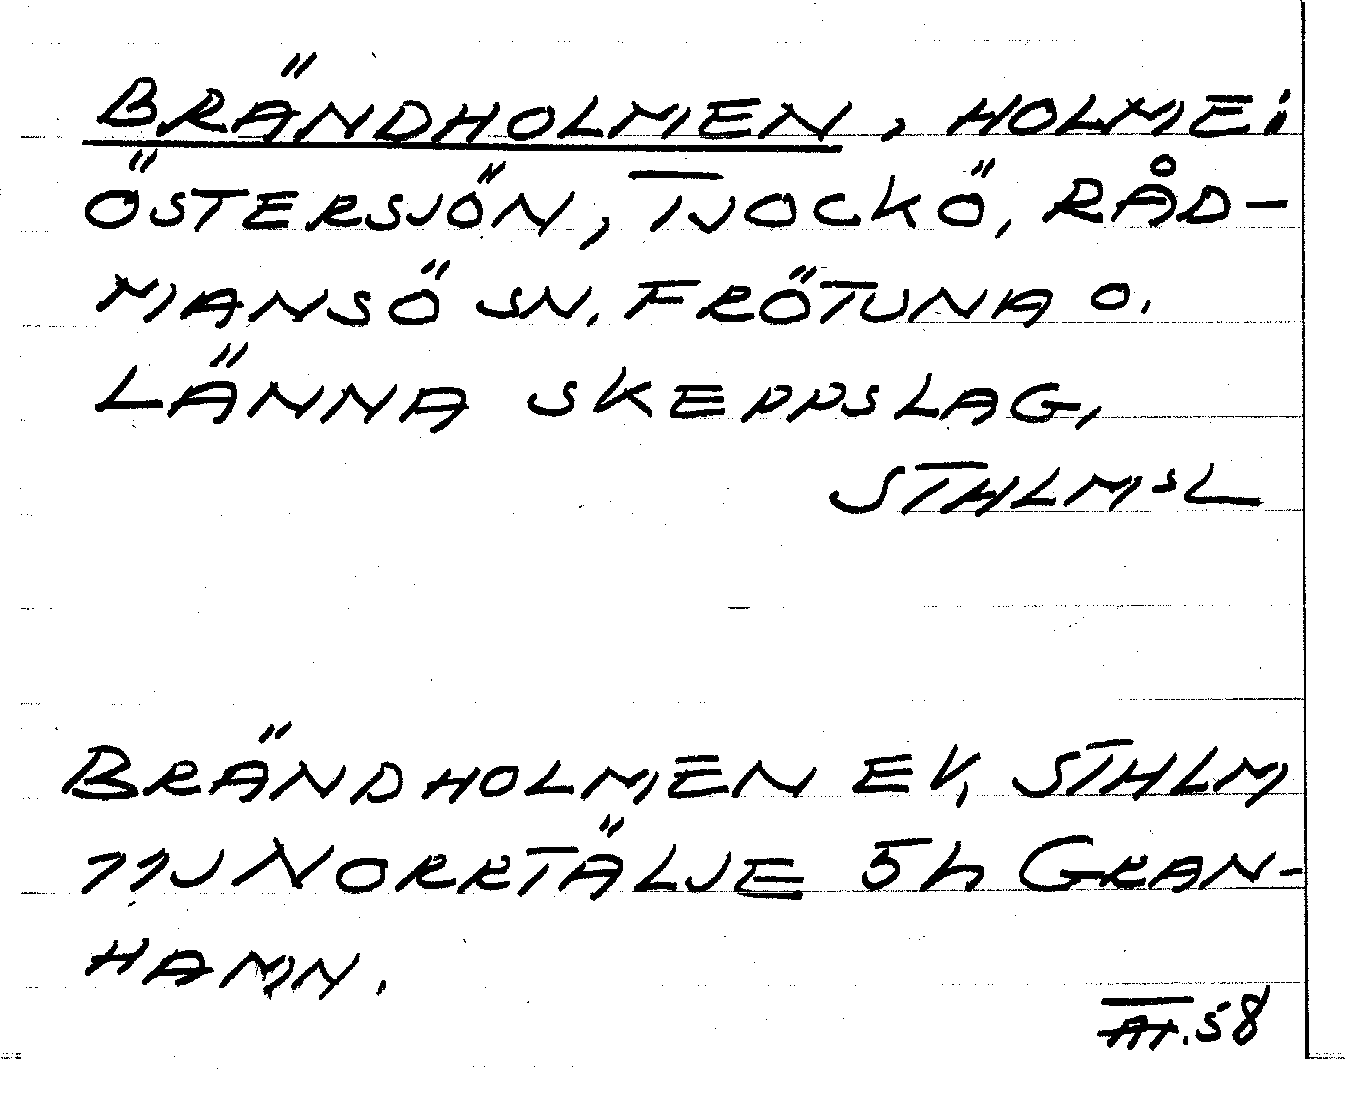 BRÄNDHOLMEN, HOLME i
ÖSTERSJÖN, TJOCKÖ, RÅD-
MANSÖ SN. FRÖTUNA O.
LÄNNA SKEPPSLAG,
STHLMSL
BRÄNDHOLMEN EK, STHLM
11J NORRTÄLJE 5h GRAN-
HAMN.
58